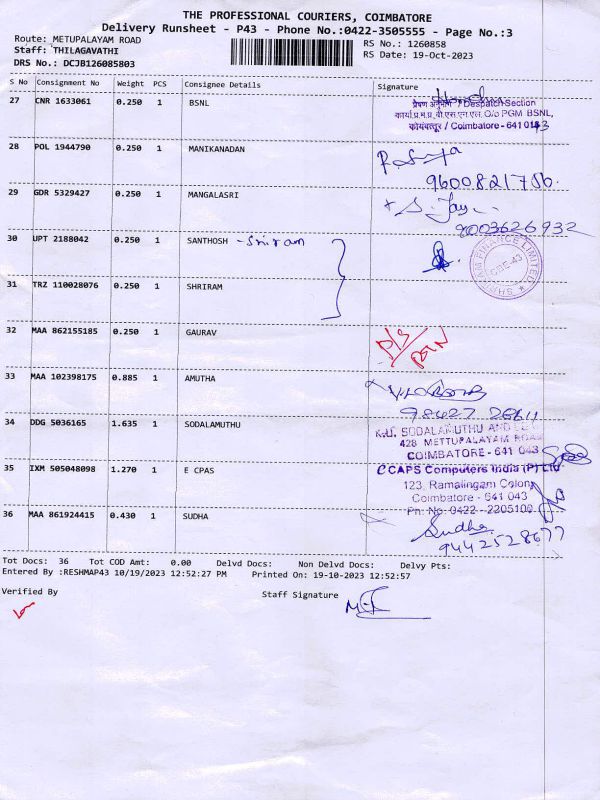 THE PROFESSIONAL COURIERS, COIMBATORE
Delivery Runsheet - P43 - Phone No.:0422-3505555 - Page No.:3
Route: METUPALAYAM ROAD
RS No.: 1260858
Staff: THILAGAVATHI
RS Date: 19-Oct-2023
DRS No.: DCJB126085803
S No Consignment No Weight PCS Consignee Details Signature
27 CNR 1633061 0.250 1 BSNL
प्रेषण अनुभाग / Despatch Section
कार्या.प्र.म.प्र, बी.एस.एन.एल. O/o PGM BSNL,
कोयंबत्तूर / Coimbatore - 641 043
28 POL 1944790 0.250 1 MANIKANADAN
9600821756.
29 GDR 5329427 0.250 1 MANGALASRI
9003626932
30 UPT 2188042 0.250 1 SANTHOSH - Sriram
SHRIRAM FINANCE LIMITED
CBE-43
31 TRZ 110028076 0.250 1 SHRIRAM
32 MAA 862155185 0.250 1 GAURAV
33 MAA 102398175 0.885 1 AMUTHA
34 DDG 5036165 1.635 1 SODALAMUTHU
K.U. SODALAMUTHU AND
428 METTUPALAYAM ROAD
COIMBATORE - 641 043
35 IXM 505048098 1.270 1 E CPAS
CCAPS Computers India (P) Ltd
123, Ramalingam Colony
Coimbatore - 641 043
Ph: No: 0422 - 2205100
36 MAA 861924415 0.430 1 SUDHA
Sudha
9442528677
Tot Docs: 36 Tot COD Amt: 0.00 Delvd Docs: Non Delvd Docs: Delvy Pts:
Entered By :RESHMAP43 10/19/2023 12:52:27 PM Printed On: 19-10-2023 12:52:57
Verified By
Staff Signature